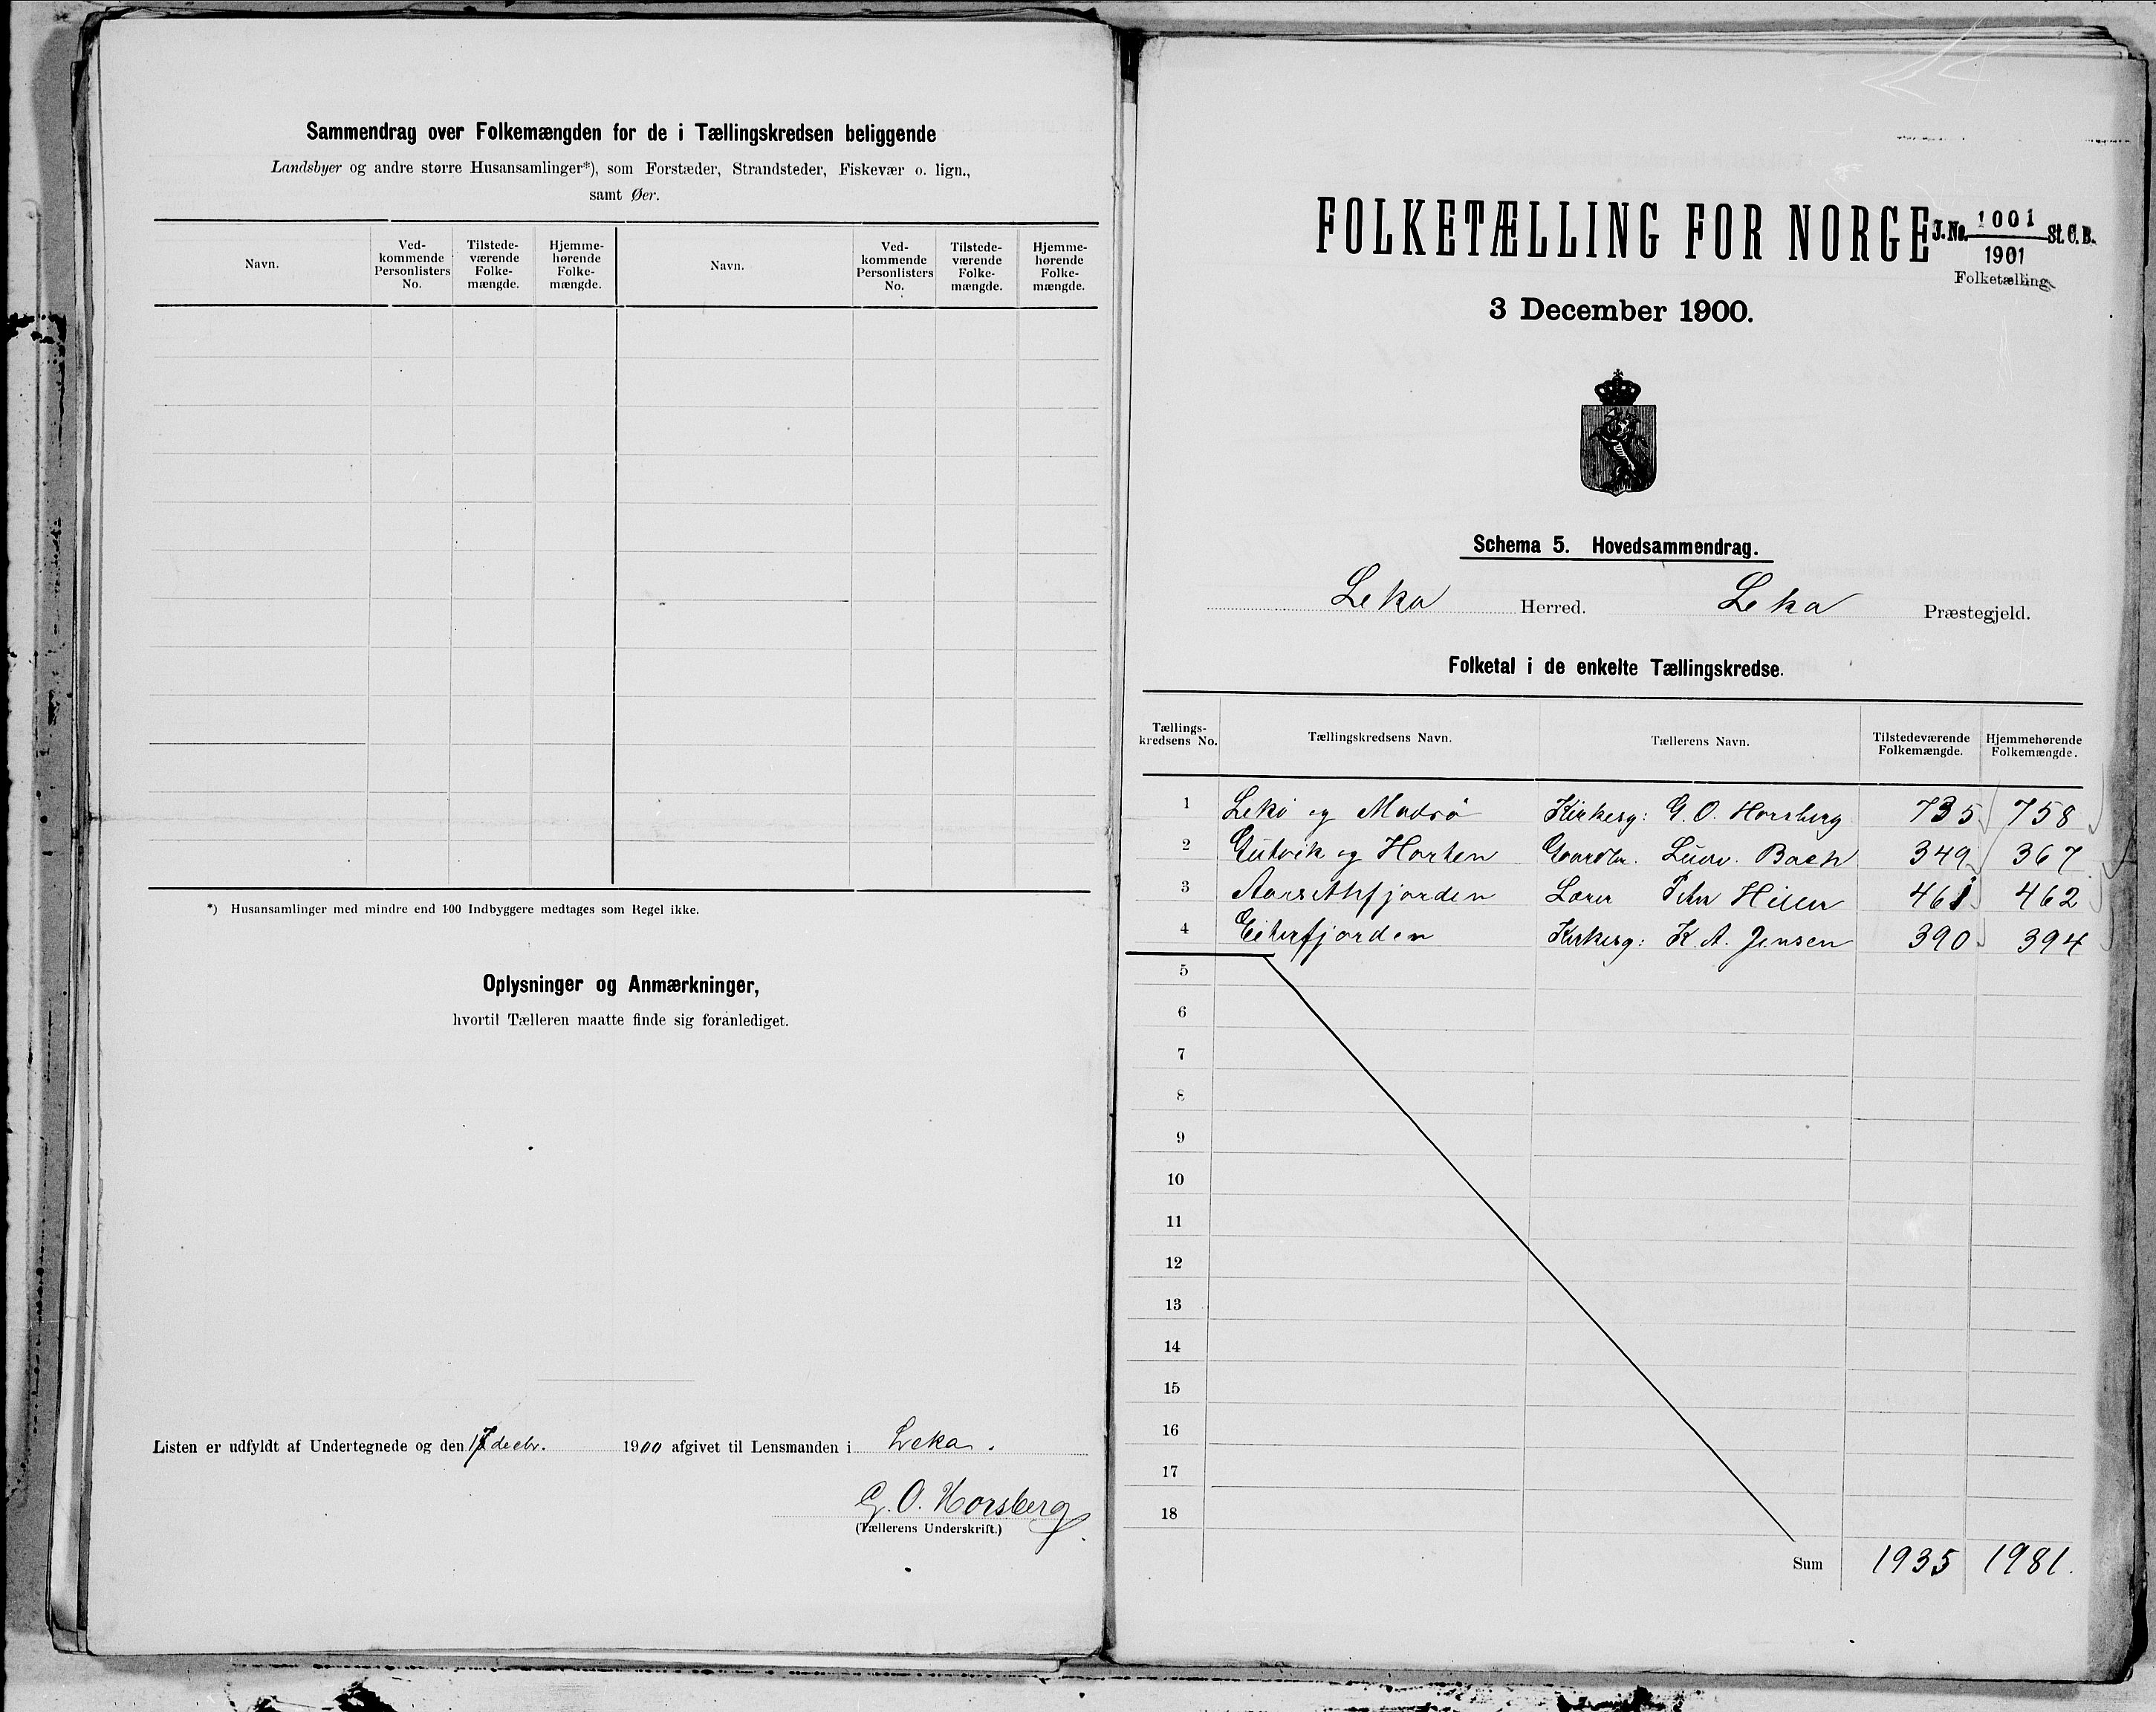 Sammendrag over Folkemængden for de i Tællingskredsen beliggende
Landsbyer og andre større Husansamlinger*), som Forstæder, Strandsteder, Fiskevær o. lign.,
samt Øer.
Navn. Ved-kommende Personlisters No. Tilstede-værende Folke-mængde. Hjemme-hørende Folke-mængde. Navn. Ved-kommende Personlisters No. Tilstede-værende Folke-mængde. Hjemme-hørende Folke-mængde.
*) Husansamlinger med mindre end 100 Indbyggere medtages som Regel ikke.
Oplysninger og Anmærkninger,
hvortil Tælleren maatte finde sig foranlediget.
Listen er udfyldt af Undertegnede og den 17 decbr. 1900 afgivet til Lensmanden i Leka.
G. O. Horsberg
(Tællerens Underskrift.)
FOLKETÆLLING FOR NORGE
J. No. 1001 St. C. B.
1901
Folketælling
3 December 1900.
Schema 5. Hovedsammendrag.
Leka Herred. Leka Præstegjeld.
Folketal i de enkelte Tællingskredse.
Tællings-kredsens No. Tællingskredsens Navn. Tællerens Navn. Tilstedeværende Folkemængde. Hjemmehørende Folkemængde.
1 Lekø og Madsø Kirkesg: G. O. Horsberg 735 758
2 Gutvik og Horten Gaardbr. Bach 349 367
3 Aarsethfjorden Lærer Peter 461 462
4 Eiterfjorden Kirkesg: K. A. Jensen 390 394
5
6
7
8
9
10
11
12
13
14
15
16
17
18
Sum 1935 1981.